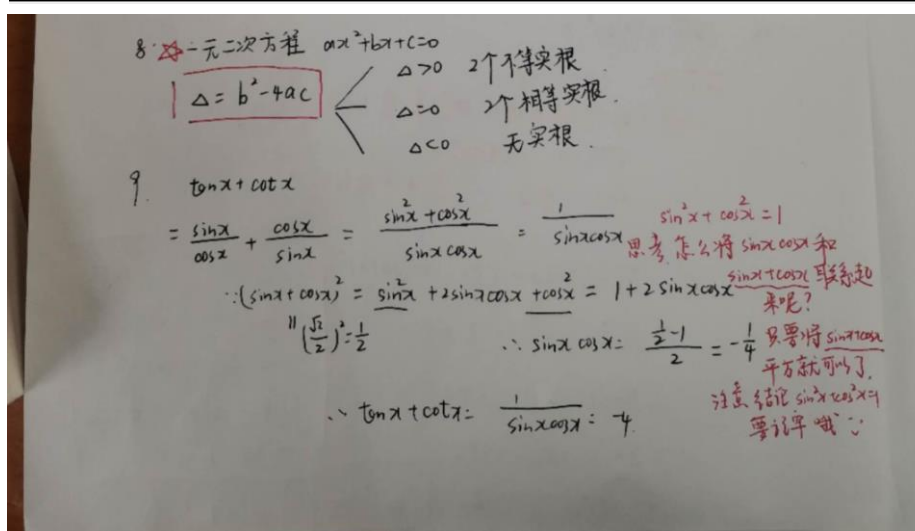 8. ☆一元二次方程 ax²+bx+c=0
Δ=b²-4ac
Δ>0 2个不等实根
Δ=0 2个相等实根.
Δ<0 无实根.
9. tanx+cotx
= sinx/cosx + cosx/sinx = (sin²x+cos²x)/(sinxcosx) = 1/(sinxcosx)
sin²x+cos²x=1
思考,怎么将sinxcosx和
sinx+cosx联系起
来呢?
∵(sinx+cosx)² = sin²x+2sinxcosx+cos²x = 1+2sinxcosx
〃(√2/2)²=1/2
∴ sinxcosx= (1/2-1)/2 = -1/4
只要将sinx+cosx
平方就可以了.
∴ tanx+cotx= 1/(sinxcosx) = -4.
注意结论sin²x+cos²x=1
要记牢哦